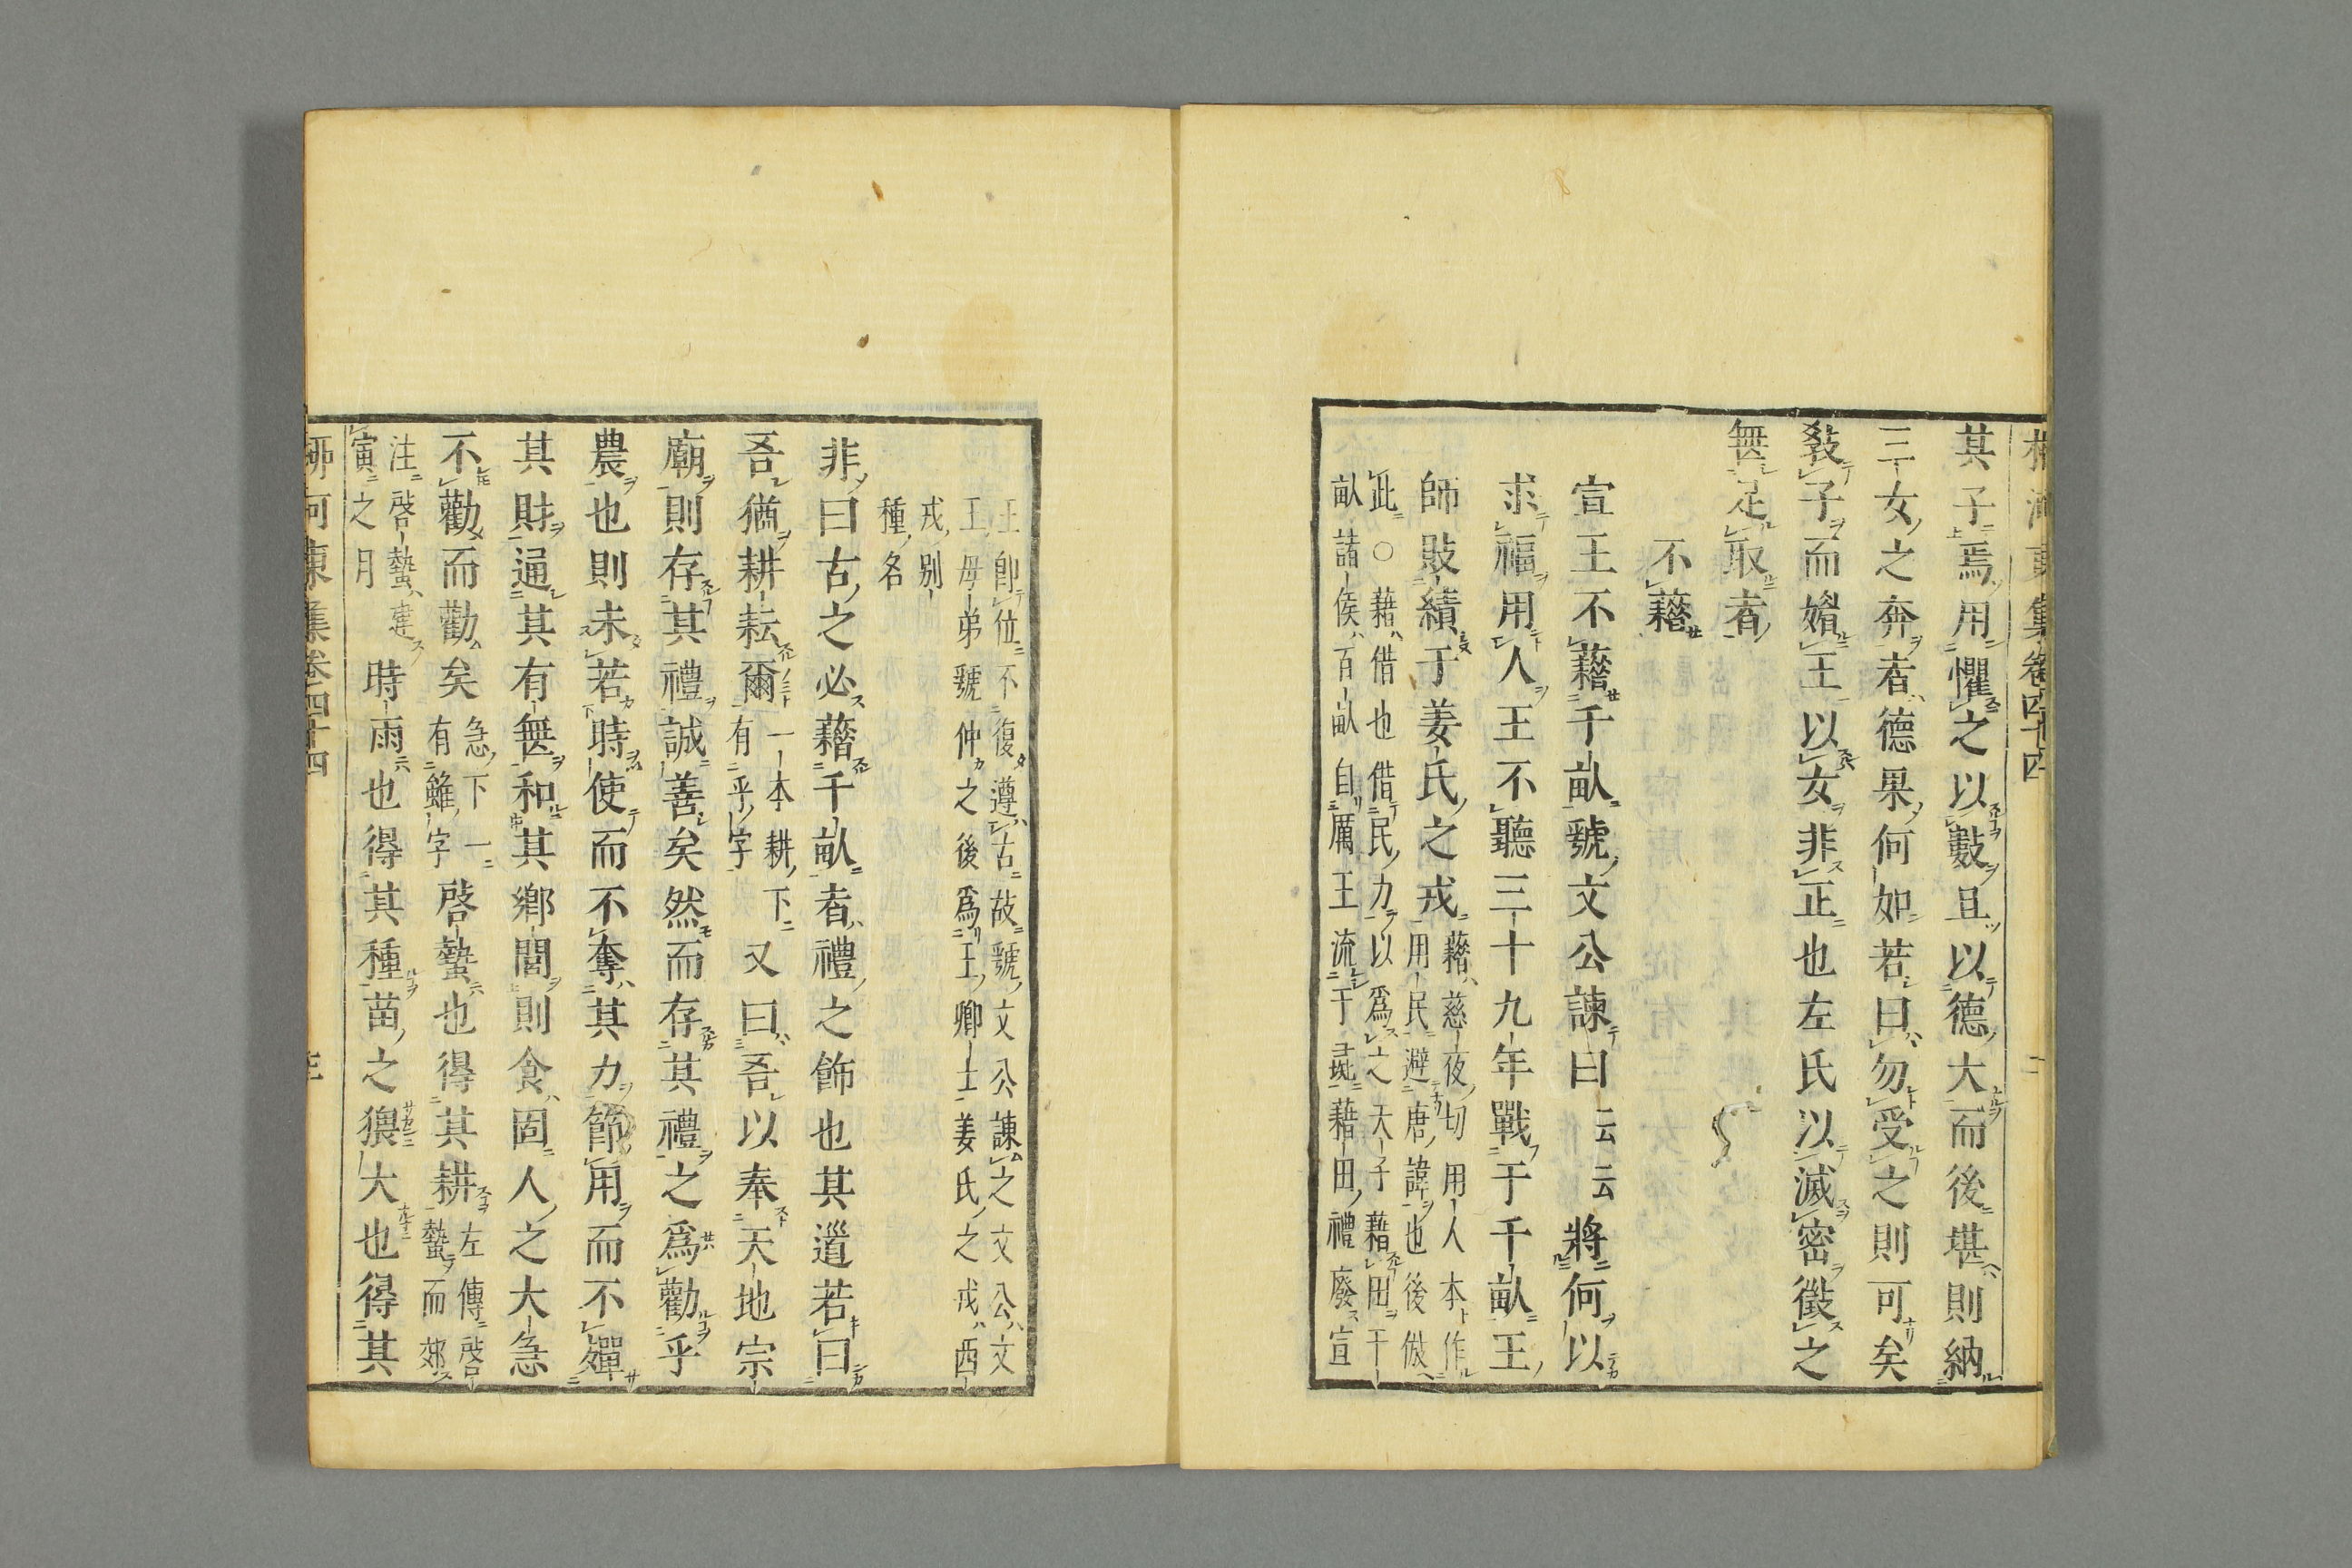 柳河東集卷四十四
其子焉用懼之以數且以德大而後堪則納
三女之奔者德果何如若曰勿受之則可矣
教子而媚王以女非正也左氏以滅密徵之
無足取者
不藉
宣王不藉千畝虢文公諫曰云云將何以
求福用人王不聽三十九年戰于千畝王
師敗績于姜氏之戎藉慈夜切用人本作
用民避唐諱也後倣
此○藉借也借民力以為之天子藉田千
畝諸侯百畝自厲王流于彘藉田禮廢宣
王即位不復遵古故虢文公諫之文公文
王母弟虢仲之後為王卿士姜氏之戎西
戎別
種名
非曰古之必藉千畝者禮之飾也其道若曰
吾猶耕耘爾一本耕下
有乎字又曰吾以奉天地宗
廟則存其禮誠善矣然而存其禮之為勸乎
農也則未若時使而不奪其力節用而不殫
其財通其有無和其鄉閭則食固人之大急
不勸而勸矣急下一
有雖字啓蟄也得其耕左傳啓
蟄而郊
注啓蟄建
寅之月時雨也得其種苗之猥大也得其
柳河東集卷四十四